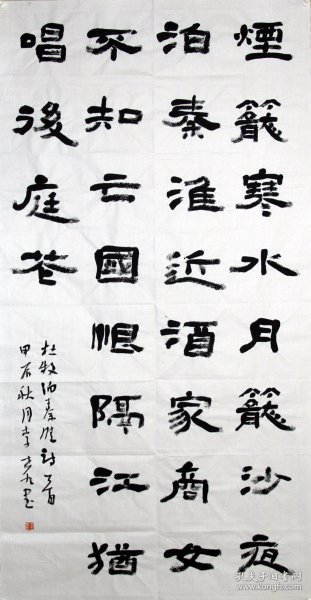 煙籠寒水月籠沙夜
泊秦淮近酒家商女
不知亡國恨隔江猶
唱後庭花
杜牧泊秦淮詩一首
秋月李
孔夫子旧书网